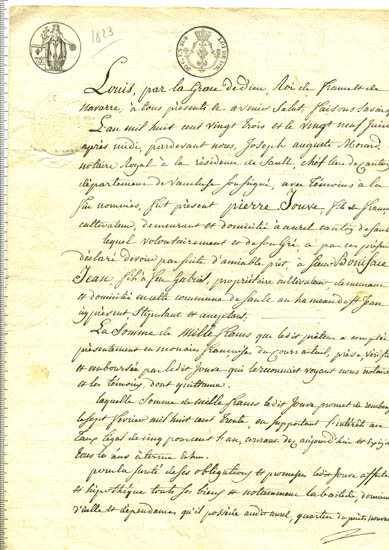 1823
Louis, par la Grace de Dieu, Roi de france et de
navarre, à tous présents et avenir Salut, faisons savoir
L'an mil huit cent vingt trois et le vingt neuf juin
après midi, pardevant nous, Joseph auguste Morard
notaire Royal à la résidence de Sault, chef lieu de canton
département de vaucluse soussigné, avec témoins à la
fin nommés, fut présent pierre Jouve, fils de
cultivateur, demeurant et domicilié à aurel canton de Sault
lequel volontairement et de son gré a par ces présentes
déclaré devoir par suite d'amiable prêt, à Sieur Boniface
Jean, fils à feu Gabriel, propriétaire cultivateur, demeurant
et domicilié en cette commune de Sault au hameau de St Jean
ici présent Stipulant et acceptant
La Somme de Mille francs que ledit prêteur a comptée
présentement en monnaie française du cours actuel, prise, vérifiée
et emboursée par ledit Jouve qui le reconnait voyant nous notaire
et les témoins, dont quittance
laquelle Somme de Mille francs ledit Jouve promet de rembourser
le sept février mil huit cent trente, en supportant l'intérêt au
taux légal de cinq pour cent l'an, courant dès aujourd'hui et
tous les ans à terme échu.
pour la sureté de ses obligations et promesses ledit Jouve affecte
et hipothèque tous ses biens et notamment la bastide, domaine
d'icelle et dépendances qu'il possède audit aurel, quartier